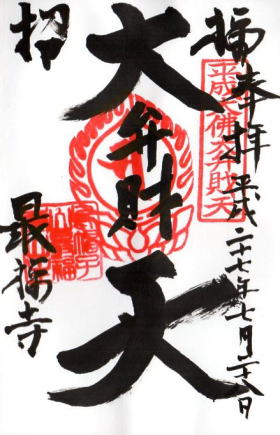 福
奉拝 平成二十七年七月二十八日
平成大佛大弁財天
大弁財天
招
最福寺